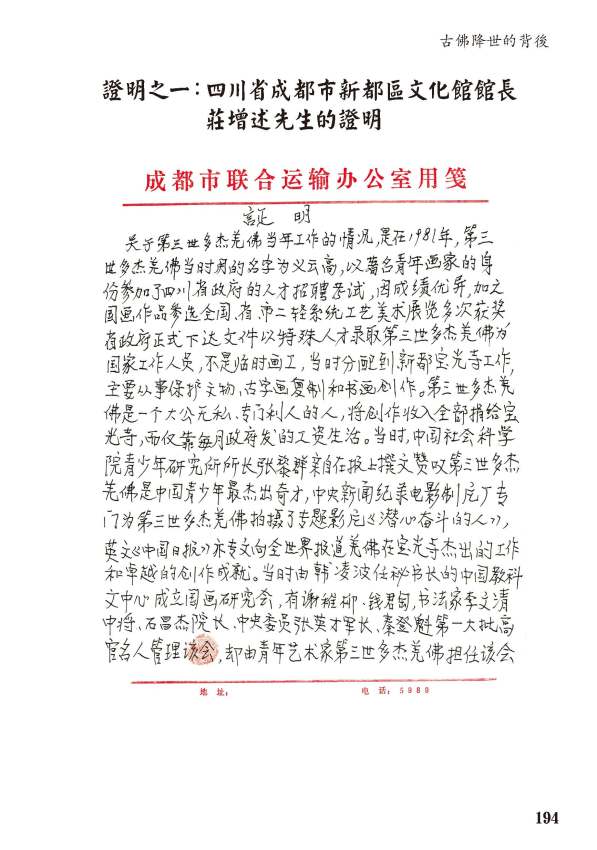 古佛降世的背後
證明之一：四川省成都市新都區文化館館長
莊增述先生的證明
成都市联合运输办公室用笺
証 明
关于第三世多杰羌佛当年工作的情况，是在1981年，第三
世多杰羌佛当时用的名字为义云高，以著名青年画家的身
份参加了四川省政府的人才招聘考试，因成绩优异，加之
国画作品参选全国、省、市二轻系统工艺美术展览多次获奖
省政府正式下达文件以特殊人才录取第三世多杰羌佛为
国家工作人员，不是临时画工，当时分配到新都宝光寺工作，
主要从事保护文物、古字画复制和书画创作。第三世多杰羌
佛是一个大公无私、专门利人的人，将创作收入全部捐给宝
光寺，而仅靠每月政府发的工资生活。当时，中国社会科学
院青少年研究所所长张黎群亲自在报上撰文赞叹第三世多杰
羌佛是中国青少年最杰出奇才，中央新闻纪录电影制片厂专
门为第三世多杰羌佛拍摄了专题影片《潜心奋斗的人》，
英文《中国日报》亦专文向全世界报道羌佛在宝光寺杰出的工作
和卓越的创作成就。当时由韩凌波任秘书长的中国教科
文中心成立国画研究会，有谢稚柳、钱君匋，书法家李文清
中将、石昌杰院长、中央委员张英才军长、秦登魁第一大批高
官名人管理该会，却由青年艺术家第三世多杰羌佛担任该会
地 址：
电 话：5989
194